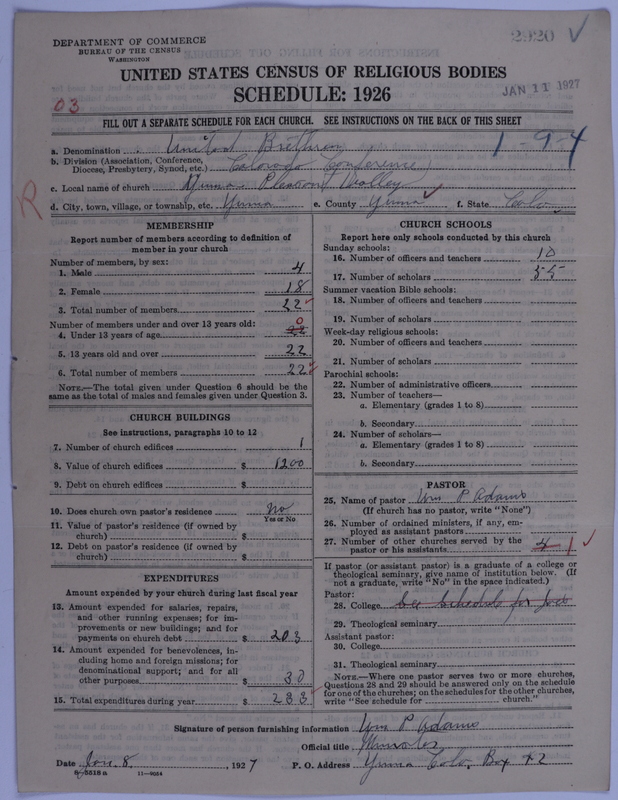 DEPARTMENT OF COMMERCE
BUREAU OF THE CENSUS
WASHINGTON
UNITED STATES CENSUS OF RELIGIOUS BODIES
SCHEDULE: 1926
JAN 11 1927
03
FILL OUT A SEPARATE SCHEDULE FOR EACH CHURCH. SEE INSTRUCTIONS ON THE BACK OF THIS SHEET
1-9-4
a. Denomination United Brethren
b. Division (Association, Conference, Diocese, Presbytery, Synod, etc.) Colorado Conference
c. Local name of church Yuma Pleasant Valley
R
d. City, town, village, or township, etc. Yuma e. County Yuma f. State Colo
MEMBERSHIP
Report number of members according to definition of
member in your church
Number of members, by sex:
1. Male 4
2. Female 18
3. Total number of members 22
Number of members under and over 13 years old: 0
4. Under 13 years of age 22
5. 13 years old and over 22
6. Total number of members 22
NOTE.—The total given under Question 6 should be the
same as the total of males and females given under Question 3.
CHURCH BUILDINGS
See instructions, paragraphs 10 to 12
7. Number of church edifices 1
8. Value of church edifices $ 1200
9. Debt on church edifices $
10. Does church own pastor's residence No
Yes or No
11. Value of pastor's residence (if owned by
church) $
12. Debt on pastor's residence (if owned by
church) $
EXPENDITURES
Amount expended by your church during last fiscal year
13. Amount expended for salaries, repairs,
and other running expenses; for im-
provements or new buildings; and for
payments on church debt $ 203
14. Amount expended for benevolences, in-
cluding home and foreign missions; for
denominational support; and for all
other purposes $ 30
15. Total expenditures during year $ 233
CHURCH SCHOOLS
Report here only schools conducted by this church
Sunday schools:
16. Number of officers and teachers 10
17. Number of scholars 55
Summer vacation Bible schools:
18. Number of officers and teachers
19. Number of scholars
Week-day religious schools:
20. Number of officers and teachers
21. Number of scholars
Parochial schools:
22. Number of administrative officers
23. Number of teachers—
a. Elementary (grades 1 to 8)
b. Secondary
24. Number of scholars—
a. Elementary (grades 1 to 8)
b. Secondary
PASTOR
25. Name of pastor Wm P Adams
(If church has no pastor, write "None")
26. Number of ordained ministers, if any, em-
ployed as assistant pastors
27. Number of other churches served by the
pastor or his assistants 4 1
If pastor (or assistant pastor) is a graduate of a college or
theological seminary, give name of institution below. (If
not a graduate, write "No" in the space indicated.)
Pastor:
28. College See Schedule for
29. Theological seminary
Assistant pastor:
30. College
31. Theological seminary
NOTE.—Where one pastor serves two or more churches,
Questions 28 and 29 should be answered only on the schedule
for one of the churches; on the schedules for the other churches,
write "See schedule for church."
Signature of person furnishing information Wm P Adams
Official title Minister
Date Jan. 8, 1927 P. O. Address Yuma Colo. Box 42
8-5518 a 11—9054